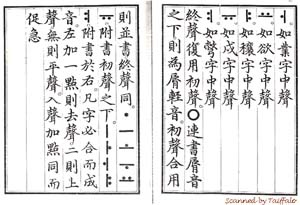 ㅓ。如業字中聲
ㅛ。如欲字中聲
ㅑ。如穰字中聲
ㅠ。如戌字中聲
ㅕ。如彆字中聲
終聲復用初聲。○連書脣音
之下。則為脣輕音。初聲合用
則並書。終聲同。ㆍㅡㅗㅜㅛ
ㅠ。附書初聲之下。ㅣㅏㅓㅑ
ㅕ。附書於右。凡字必合而成
音。左加一點則去聲。二則上
聲。無則平聲。入聲加點同而
促急
Scanned by Taiffalo